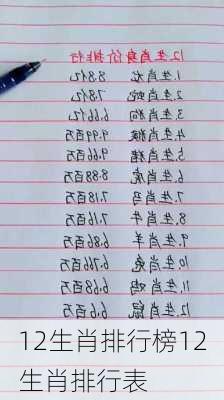 12.生肖身价排行
1.生肖龙 8.8亿
2.生肖蛇 7.8亿
3.生肖狗 6.66亿
4.生肖猴 9.99百万
5.生肖猪 9.66百万
6.生肖虎 8.88百万
7.生肖马 7.18百万
8.生肖牛 7.16百万
9.生肖羊 6.86百万
10.生肖兔 6.76百万
11.生肖鸡 6.68百万
12.生肖鼠 6.6百万
12生肖排行榜12
生肖排行表